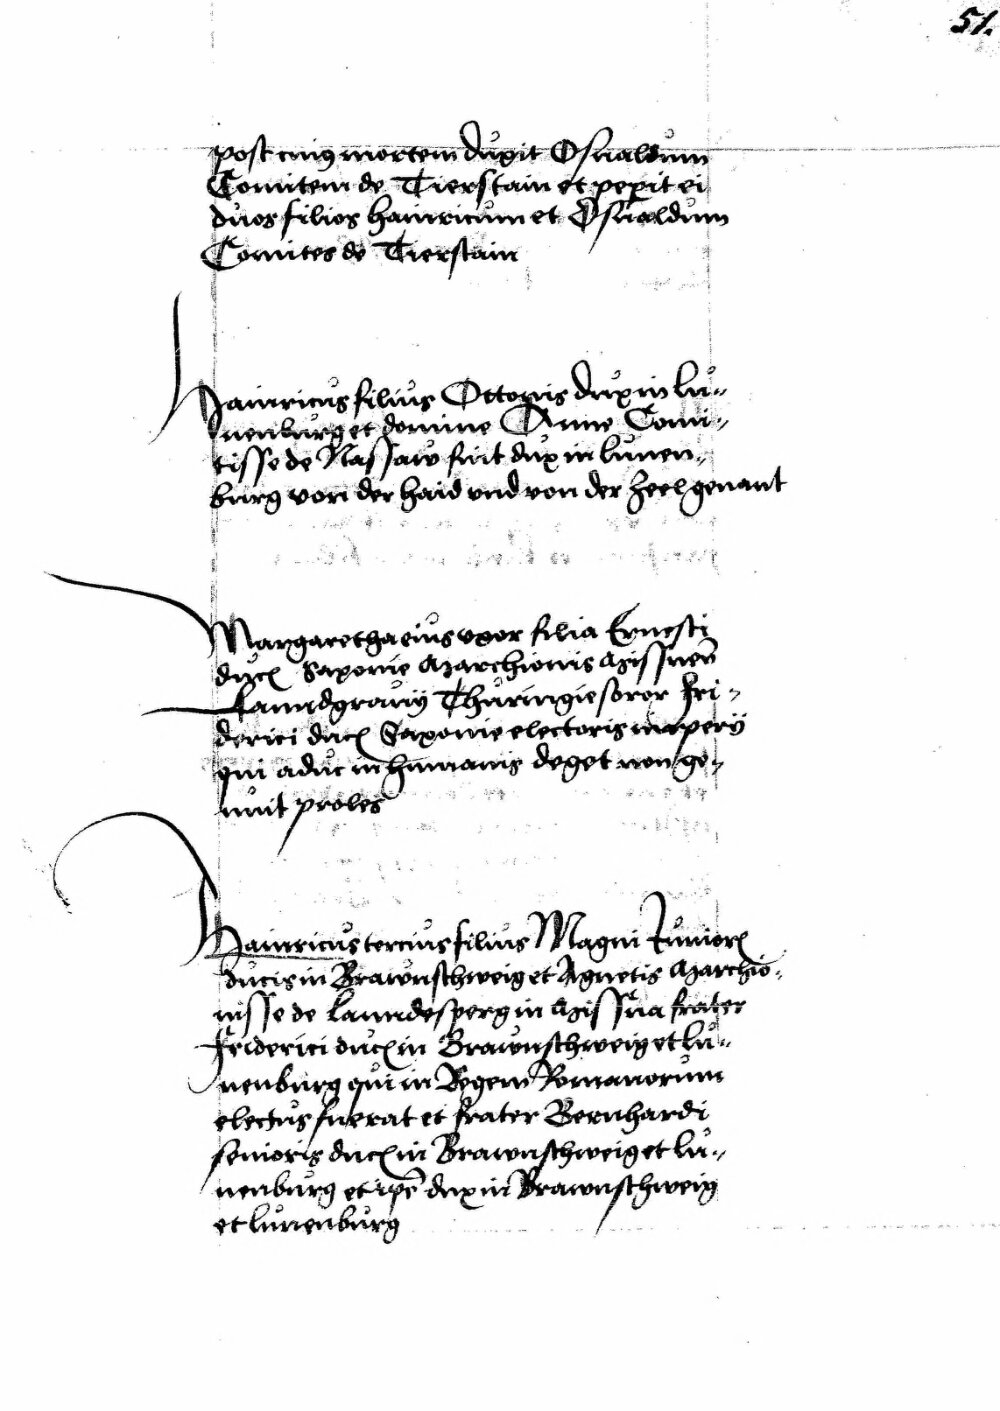 51.
post cuius mortem duxit Osualdum
Comitem de Tierstain et peperit ei
duos filios hainricum et Osualdum
Comites de Tierstain
Hainricus filius Ottonis dux in lu-
nenburg et domine Anne Comi-
tisse de Nassaw fuit dux in lunen-
burg von der haid vnd von der Zeel genant
Margaretha eius vxor filia Ernesti
duc Saxonie Marchionis Missnen
Lanndgrauij Thuringie soror Fri-
derici duc Saxonie electoris imperij
qui aduc in humanis deget non ge-
nuit proles
Hainricus tercius filius Magni Junior
ducis in Brawnschweig et Agnetis Marchio-
nisse de lanndesperg in Missna frater
Friderici duc in Brawnschweig et lu-
nenburg qui in Regem Romanorum
electus fuerat et frater Bernhardi
senioris duc in Brawnschweig et lu-
nenburg et ipse dux in Brawnschweig
et lunenburg